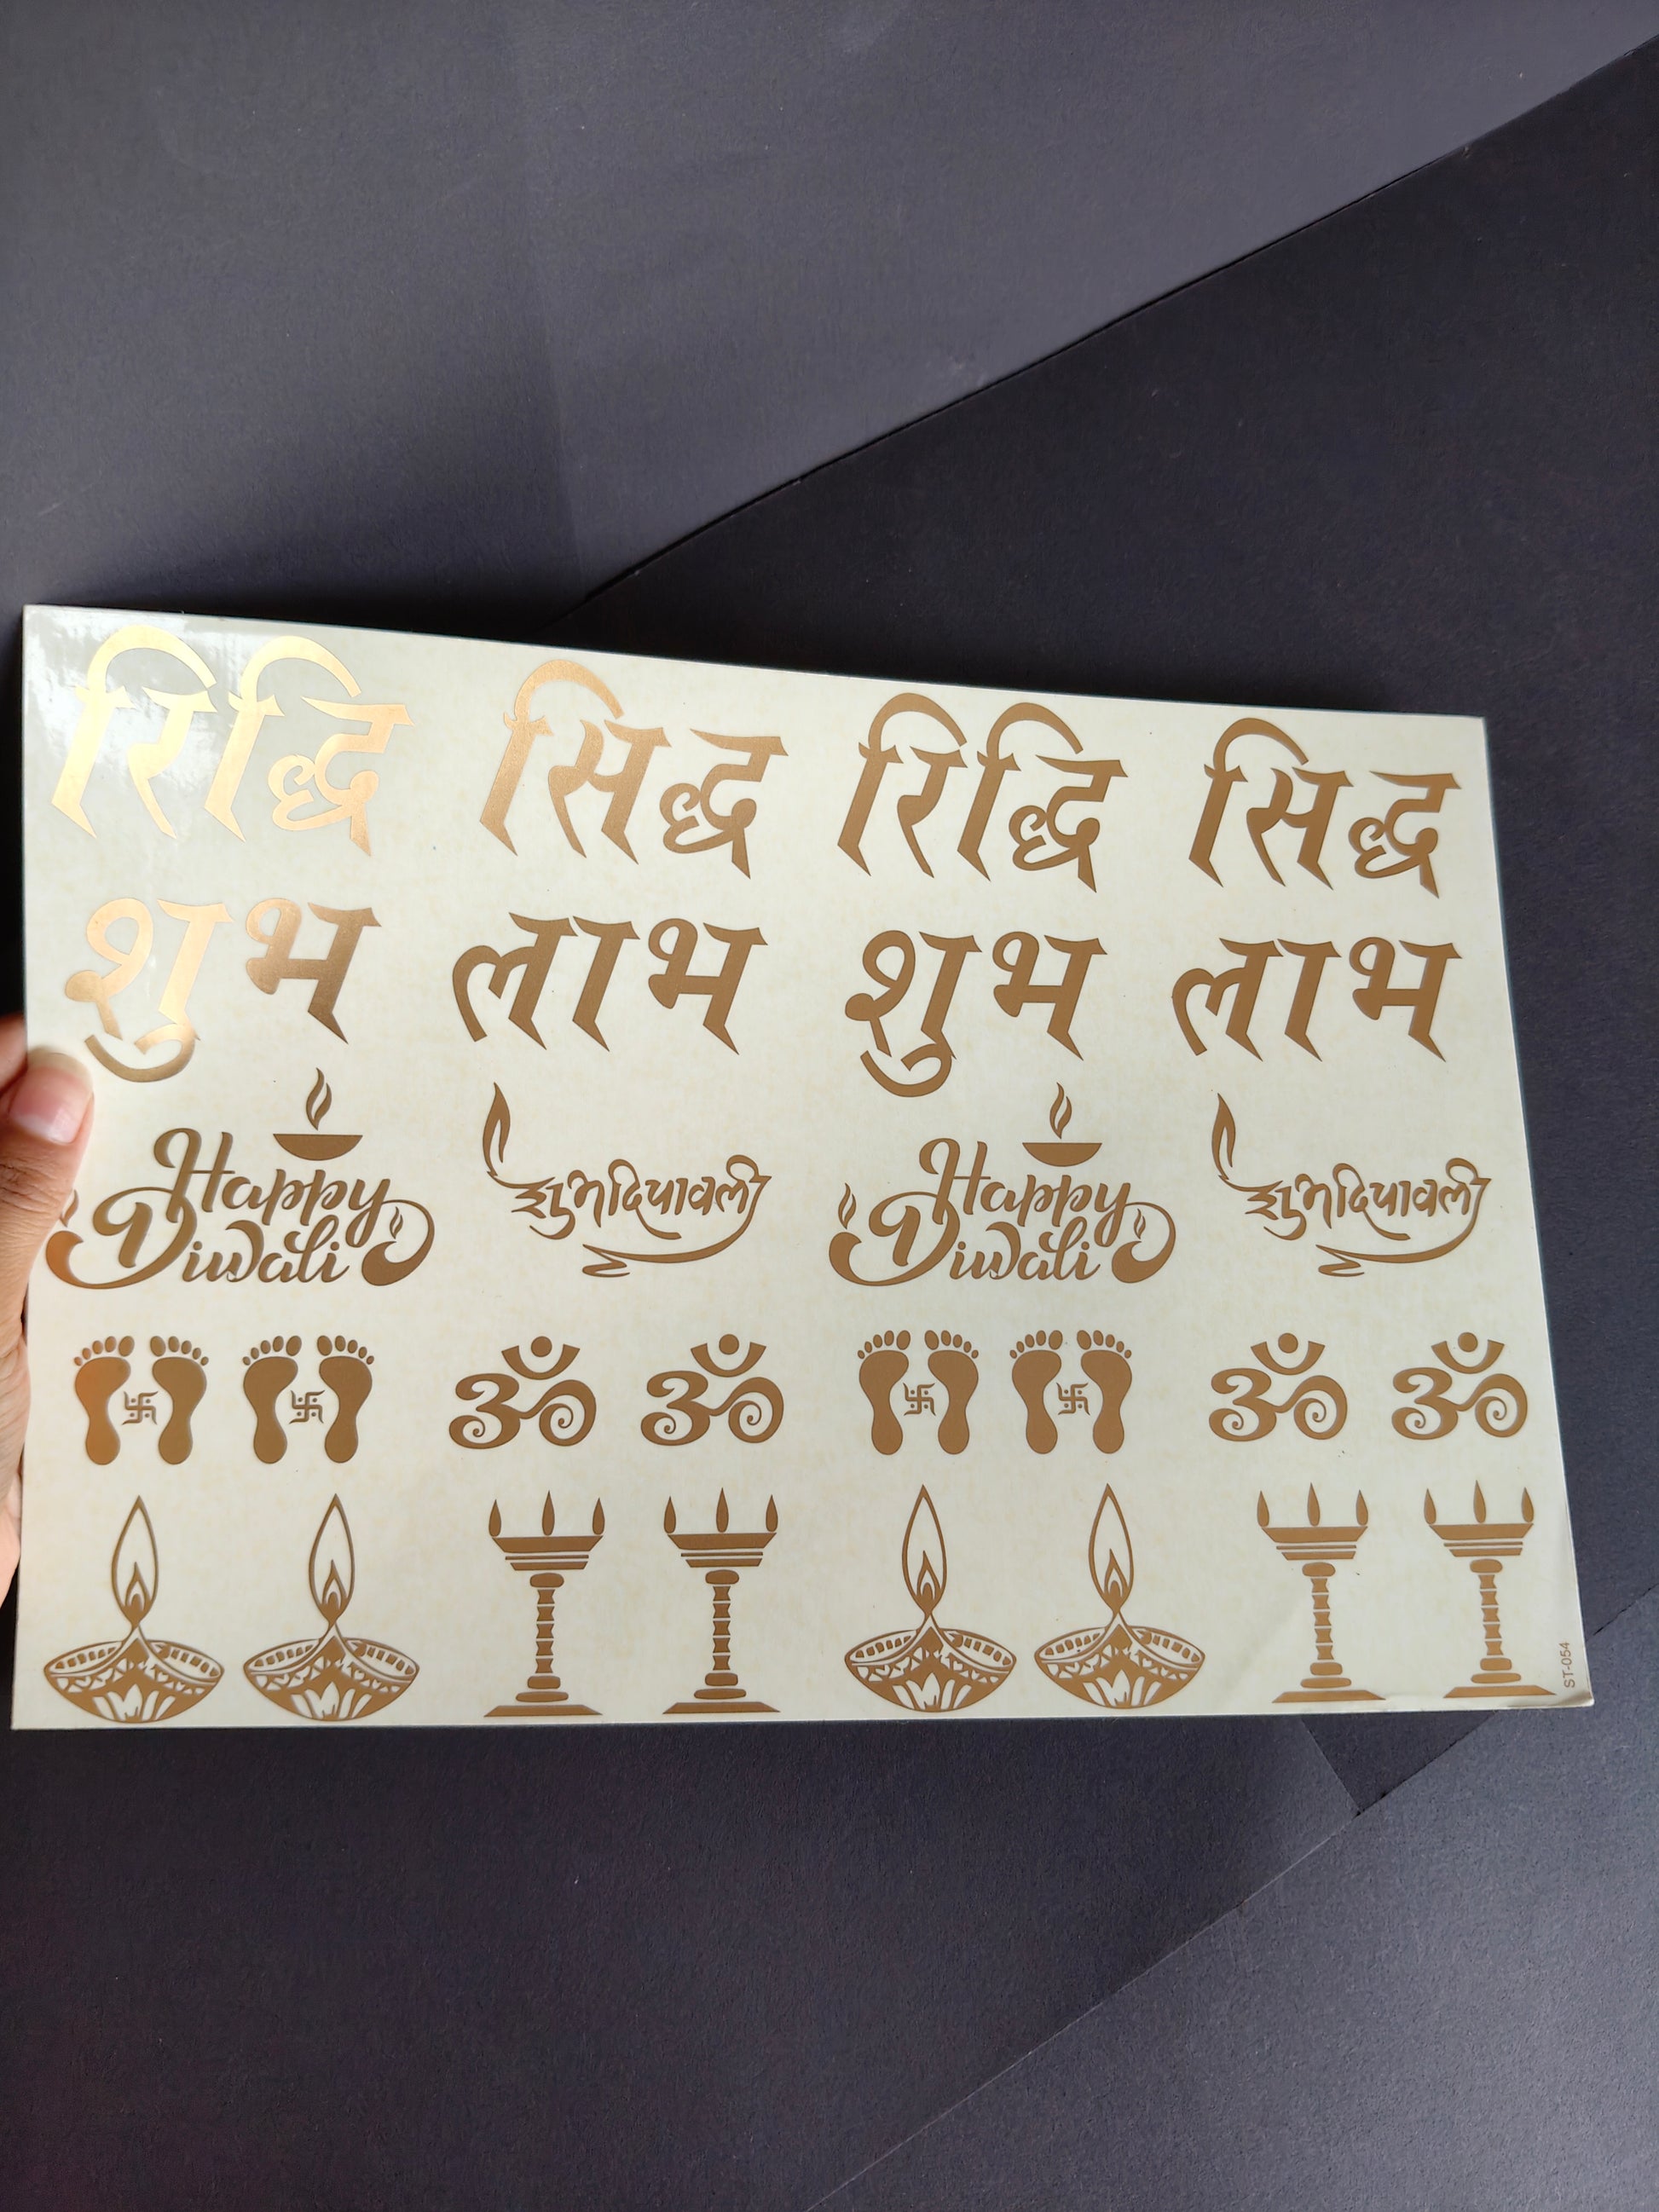 रिद्धि सिद्ध रिद्धि सिद्ध
शुभ लाभ शुभ लाभ
Happy Diwali शुभ दिपावली Happy Diwali शुभ दिपावली
ॐ ॐ ॐ ॐ
ST-054